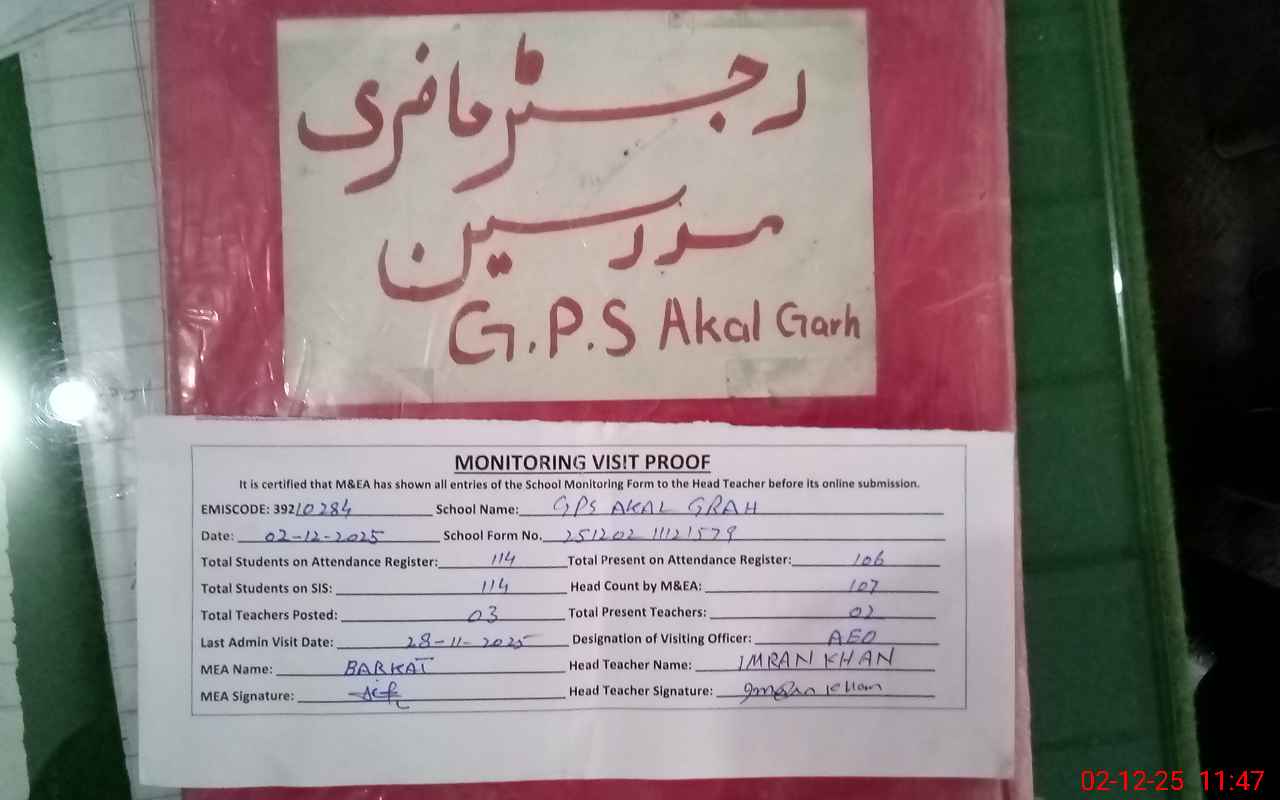 رجسٹر حاضری
مدرسین
G.P.S Akal Garh
MONITORING VISIT PROOF
It is certified that M&EA has shown all entries of the School Monitoring Form to the Head Teacher before its online submission.
EMISCODE: 39210284 School Name: GPS AKAL GRAH
Date: 02-12-2025 School Form No. 251202 11121579
Total Students on Attendance Register: 114 Total Present on Attendance Register: 106
Total Students on SIS: 114 Head Count by M&EA: 107
Total Teachers Posted: 03 Total Present Teachers: 02
Last Admin Visit Date: 28-11-2025 Designation of Visiting Officer: AEO
MEA Name: BARKAT Head Teacher Name: IMRAN KHAN
MEA Signature: Head Teacher Signature: Imran Khan
02-12-25 11:47